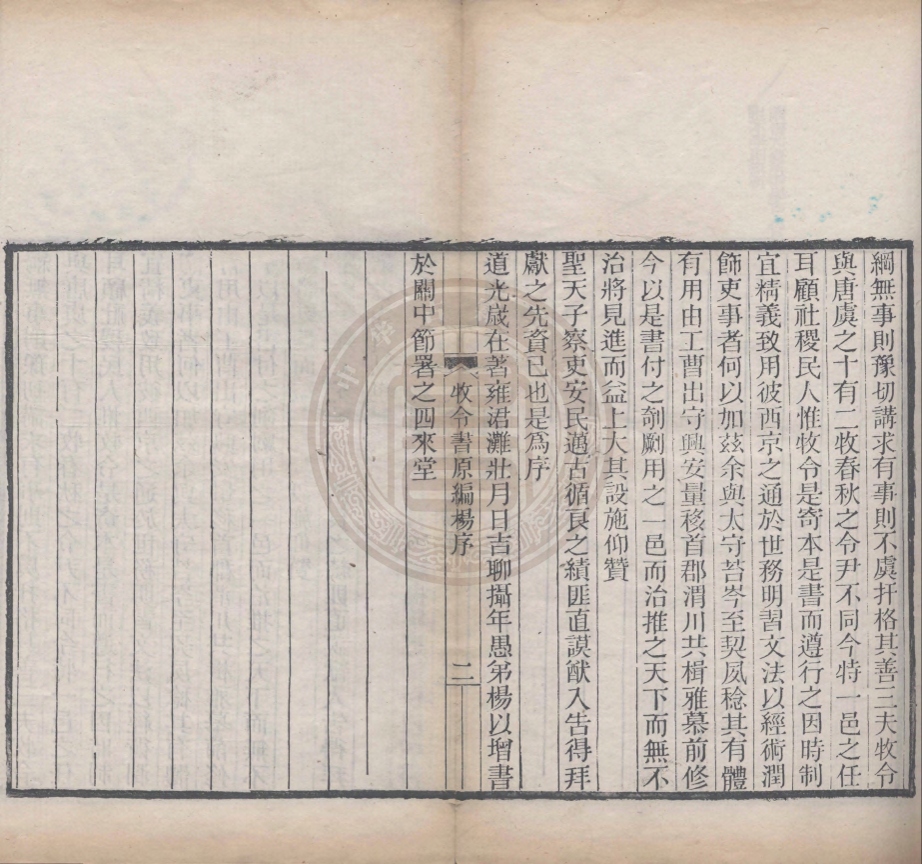 綱無事則豫切講求有事則不虞扞格其善三夫牧令
與唐虞之十有二牧春秋之令尹不同今特一邑之任
耳顧社稷民人惟牧令是寄本是書而遵行之因時制
宜精義致用彼西京之通於世務明習文法以經術潤
飾吏事者何以加茲余與太守苔岑至契夙稔其有體
有用由工曹出守興安量移首郡渭川共楫雅慕前修
今以是書付之剞劂用之一邑而治推之天下而無不
治將見進而益上大其設施仰贊
聖天子察吏安民邁古循良之績匪直謨猷入告得拜
獻之先資已也是為序
道光歲在著雍涒灘壯月日吉聊攝年愚弟楊以增書
牧令書原編楊序 二
於關中節署之四來堂